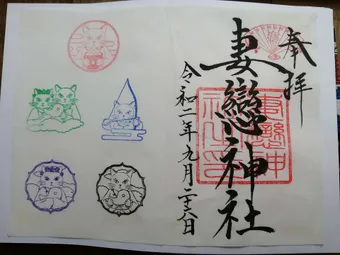 奉拝
妻戀神社
令和二年九月二十六日
妻戀神社之印